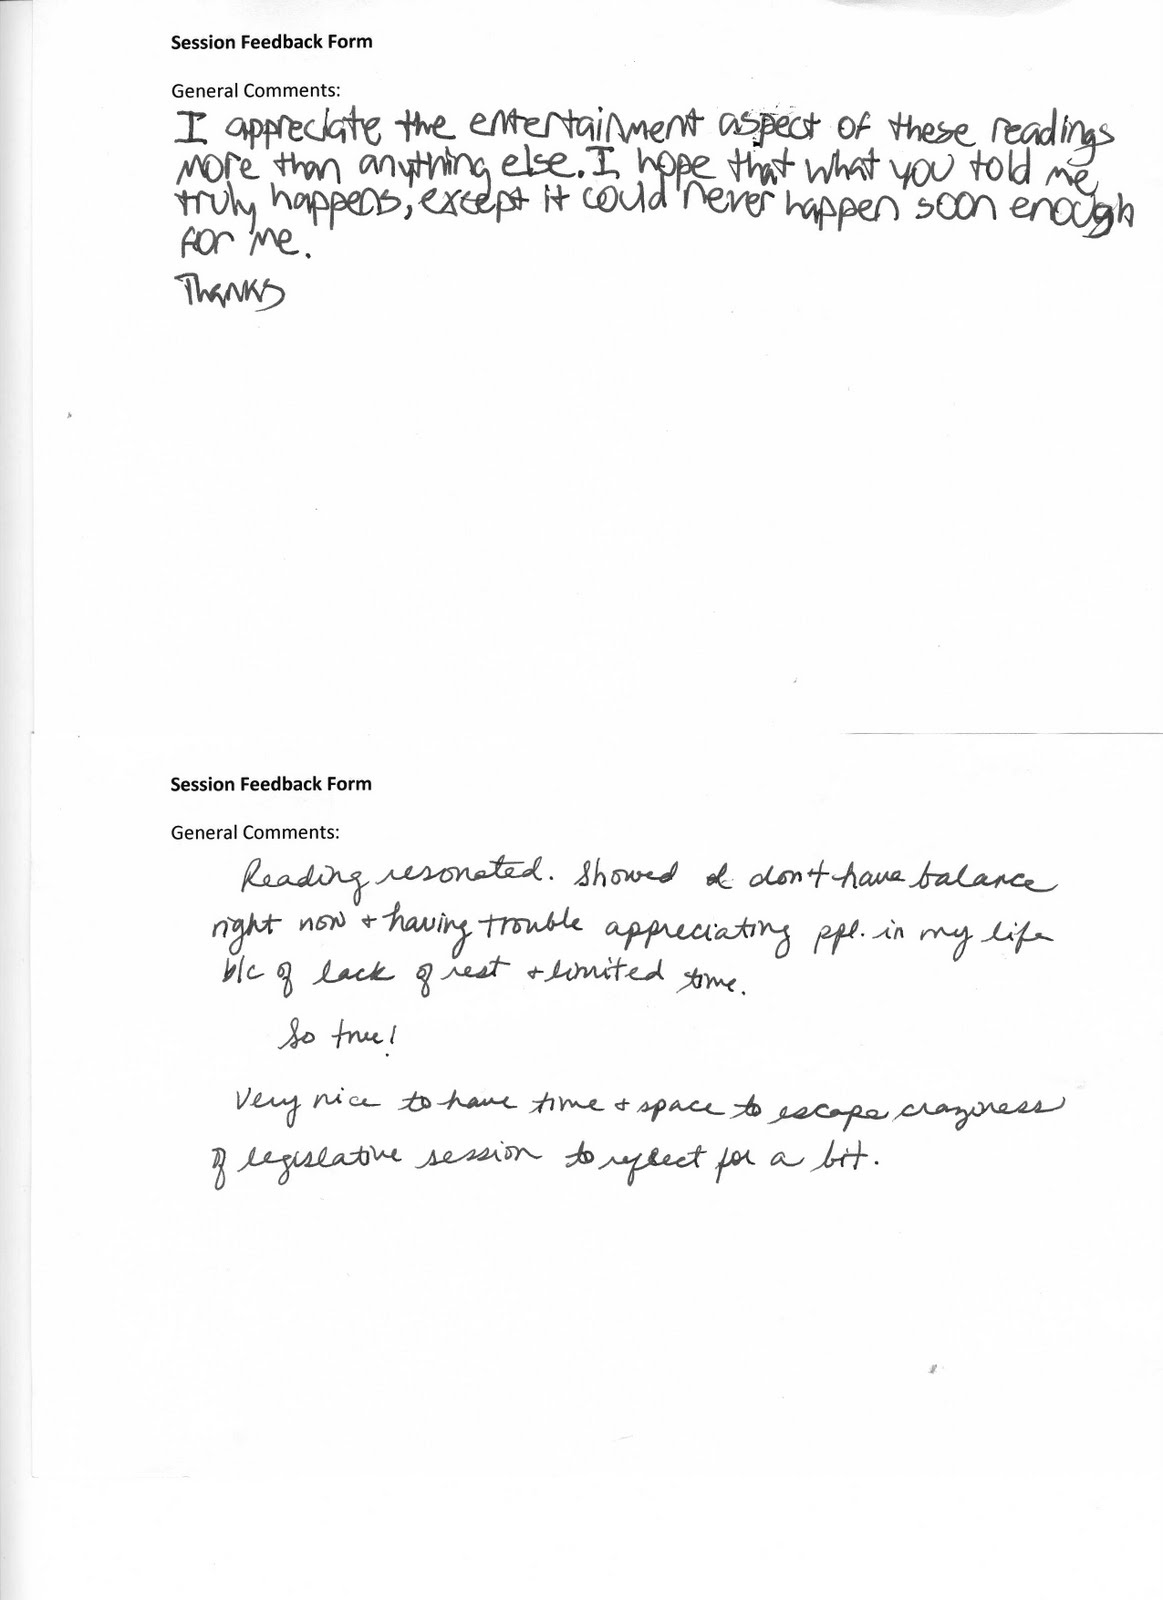 Session Feedback Form
General Comments:
I appreciate the entertainment aspect of these readings
more than anything else. I hope that what you told me
truly happens, except it could never happen soon enough
for me.
Thanks
Session Feedback Form
General Comments:
Reading resonated. Showed I don't have balance
right now + having trouble appreciating ppl. in my life
b/c of lack of rest + limited time.
So true!
Very nice to have time + space to escape craziness
of legislative session to reflect for a bit.